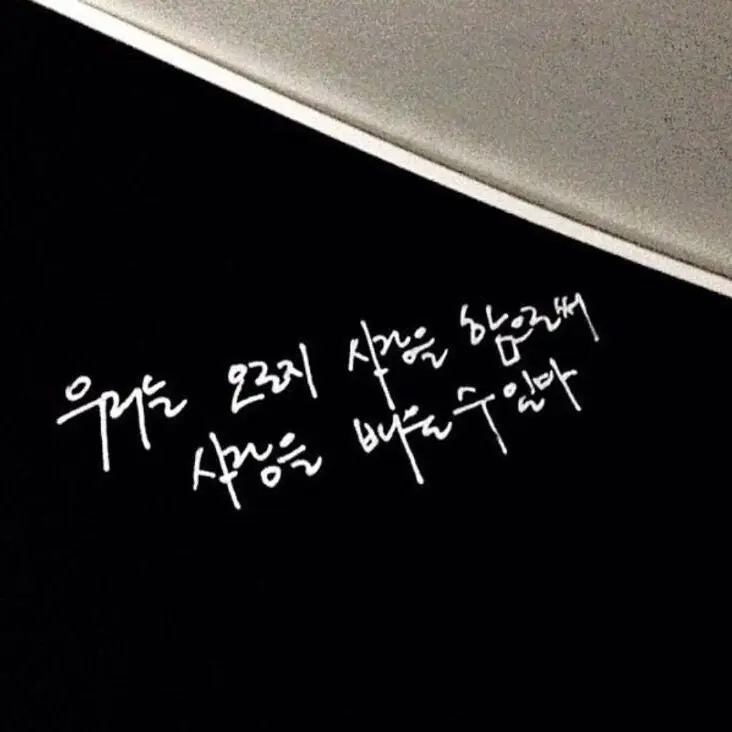 우리는 오로지 사랑을 함으로써
사랑을 배울 수 있다